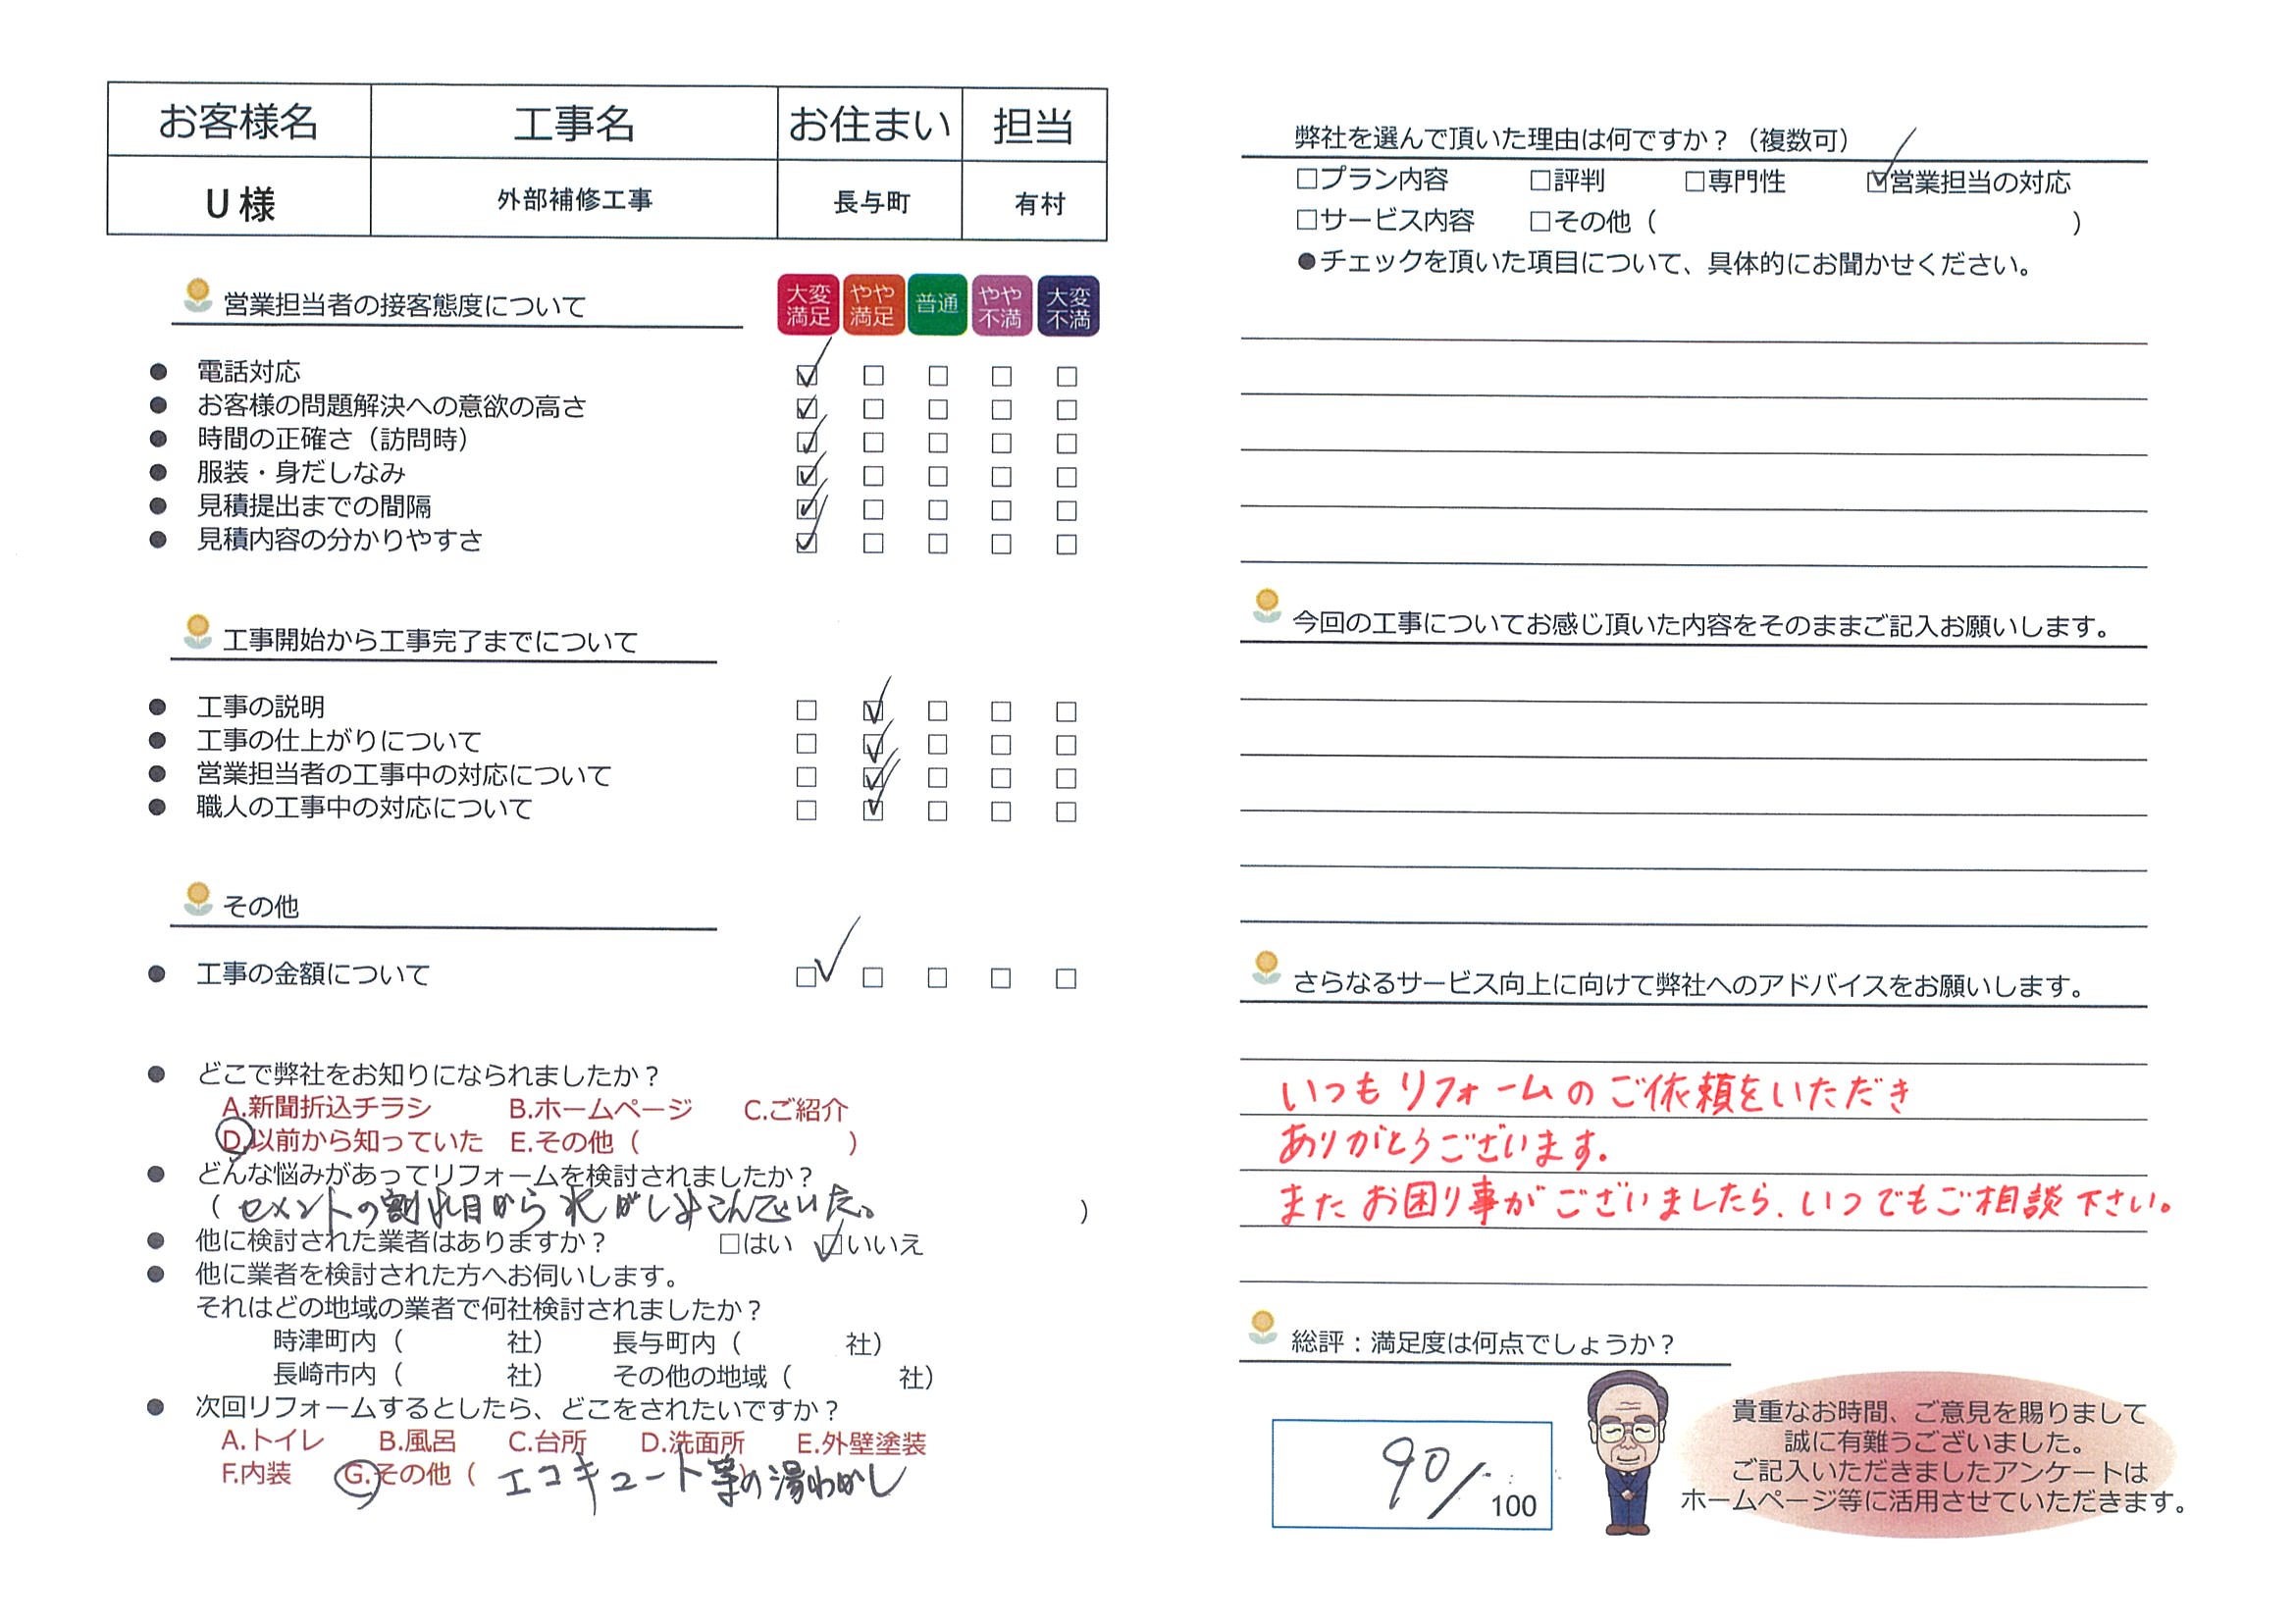 お客様名 工事名 お住まい 担当
U 様 外部補修工事 長与町 有村
営業担当者の接客態度について
大変満足 やや満足 普通 やや不満 大変不満
● 電話対応 ☑ □ □ □ □
● お客様の問題解決への意欲の高さ ☑ □ □ □ □
● 時間の正確さ（訪問時） ☑ □ □ □ □
● 服装・身だしなみ ☑ □ □ □ □
● 見積提出までの間隔 ☑ □ □ □ □
● 見積内容の分かりやすさ ☑ □ □ □ □
工事開始から工事完了までについて
● 工事の説明 □ ☑ □ □ □
● 工事の仕上がりについて □ ☑ □ □ □
● 営業担当者の工事中の対応について □ ☑ □ □ □
● 職人の工事中の対応について □ ☑ □ □ □
その他
● 工事の金額について ☑ □ □ □ □
● どこで弊社をお知りになられましたか？
A.新聞折込チラシ B.ホームページ C.ご紹介
D.以前から知っていた E.その他（ ）
● どんな悩みがあってリフォームを検討されましたか？
（ セメントの割れ目から水がしみこんでいた。 ）
● 他に検討された業者はありますか？ □はい ☑いいえ
● 他に業者を検討された方へお伺いします。
それはどの地域の業者で何社検討されましたか？
時津町内（ 社） 長与町内（ 社）
長崎市内（ 社） その他の地域（ 社）
● 次回リフォームするとしたら、どこをされたいですか？
A.トイレ B.風呂 C.台所 D.洗面所 E.外壁塗装
F.内装 G.その他（ エコキュート等の湯わかし
弊社を選んで頂いた理由は何ですか？（複数可）
□プラン内容 □評判 □専門性 ☑営業担当の対応
□サービス内容 □その他（ ）
●チェックを頂いた項目について、具体的にお聞かせください。
今回の工事についてお感じ頂いた内容をそのままご記入お願いします。
さらなるサービス向上に向けて弊社へのアドバイスをお願いします。
いつもリフォームのご依頼をいただき
ありがとうございます.
またお困り事がございましたら、いつでもご相談下さい。
総評：満足度は何点でしょうか？
90/100
貴重なお時間、ご意見を賜りまして
誠に有難うございました。
ご記入いただきましたアンケートは
ホームページ等に活用させていただきます。